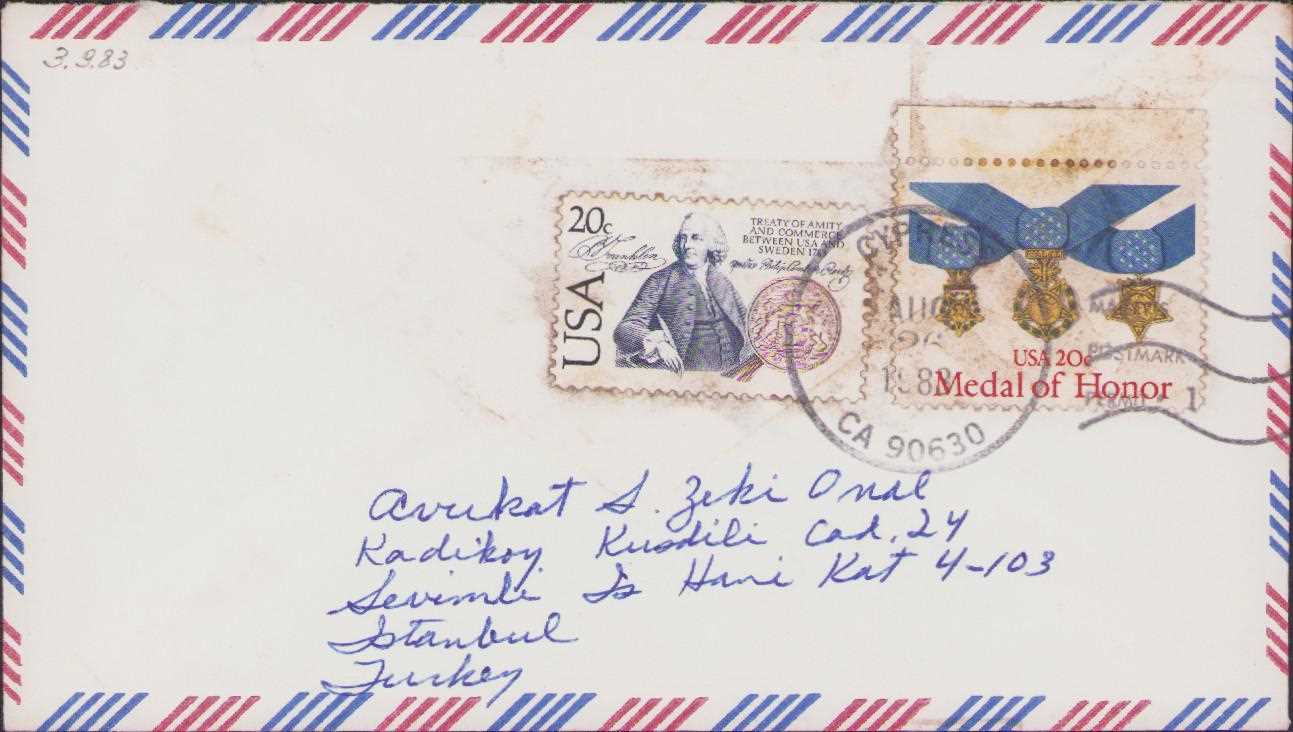 3.9.83
20c
TREATY OF AMITY
AND COMMERCE
BETWEEN USA AND
SWEDEN 1783
B Franklin
USA
CYPRESS
AUG
26
1983
CA 90630
MAILERS
POSTMARK
PERMIT 1
USA 20c
Medal of Honor
Avukat S. Zeki Onal
Kadikoy Kusdili Cad. 24
Sevimli Is Hani Kat 4-103
Istanbul
Turkey